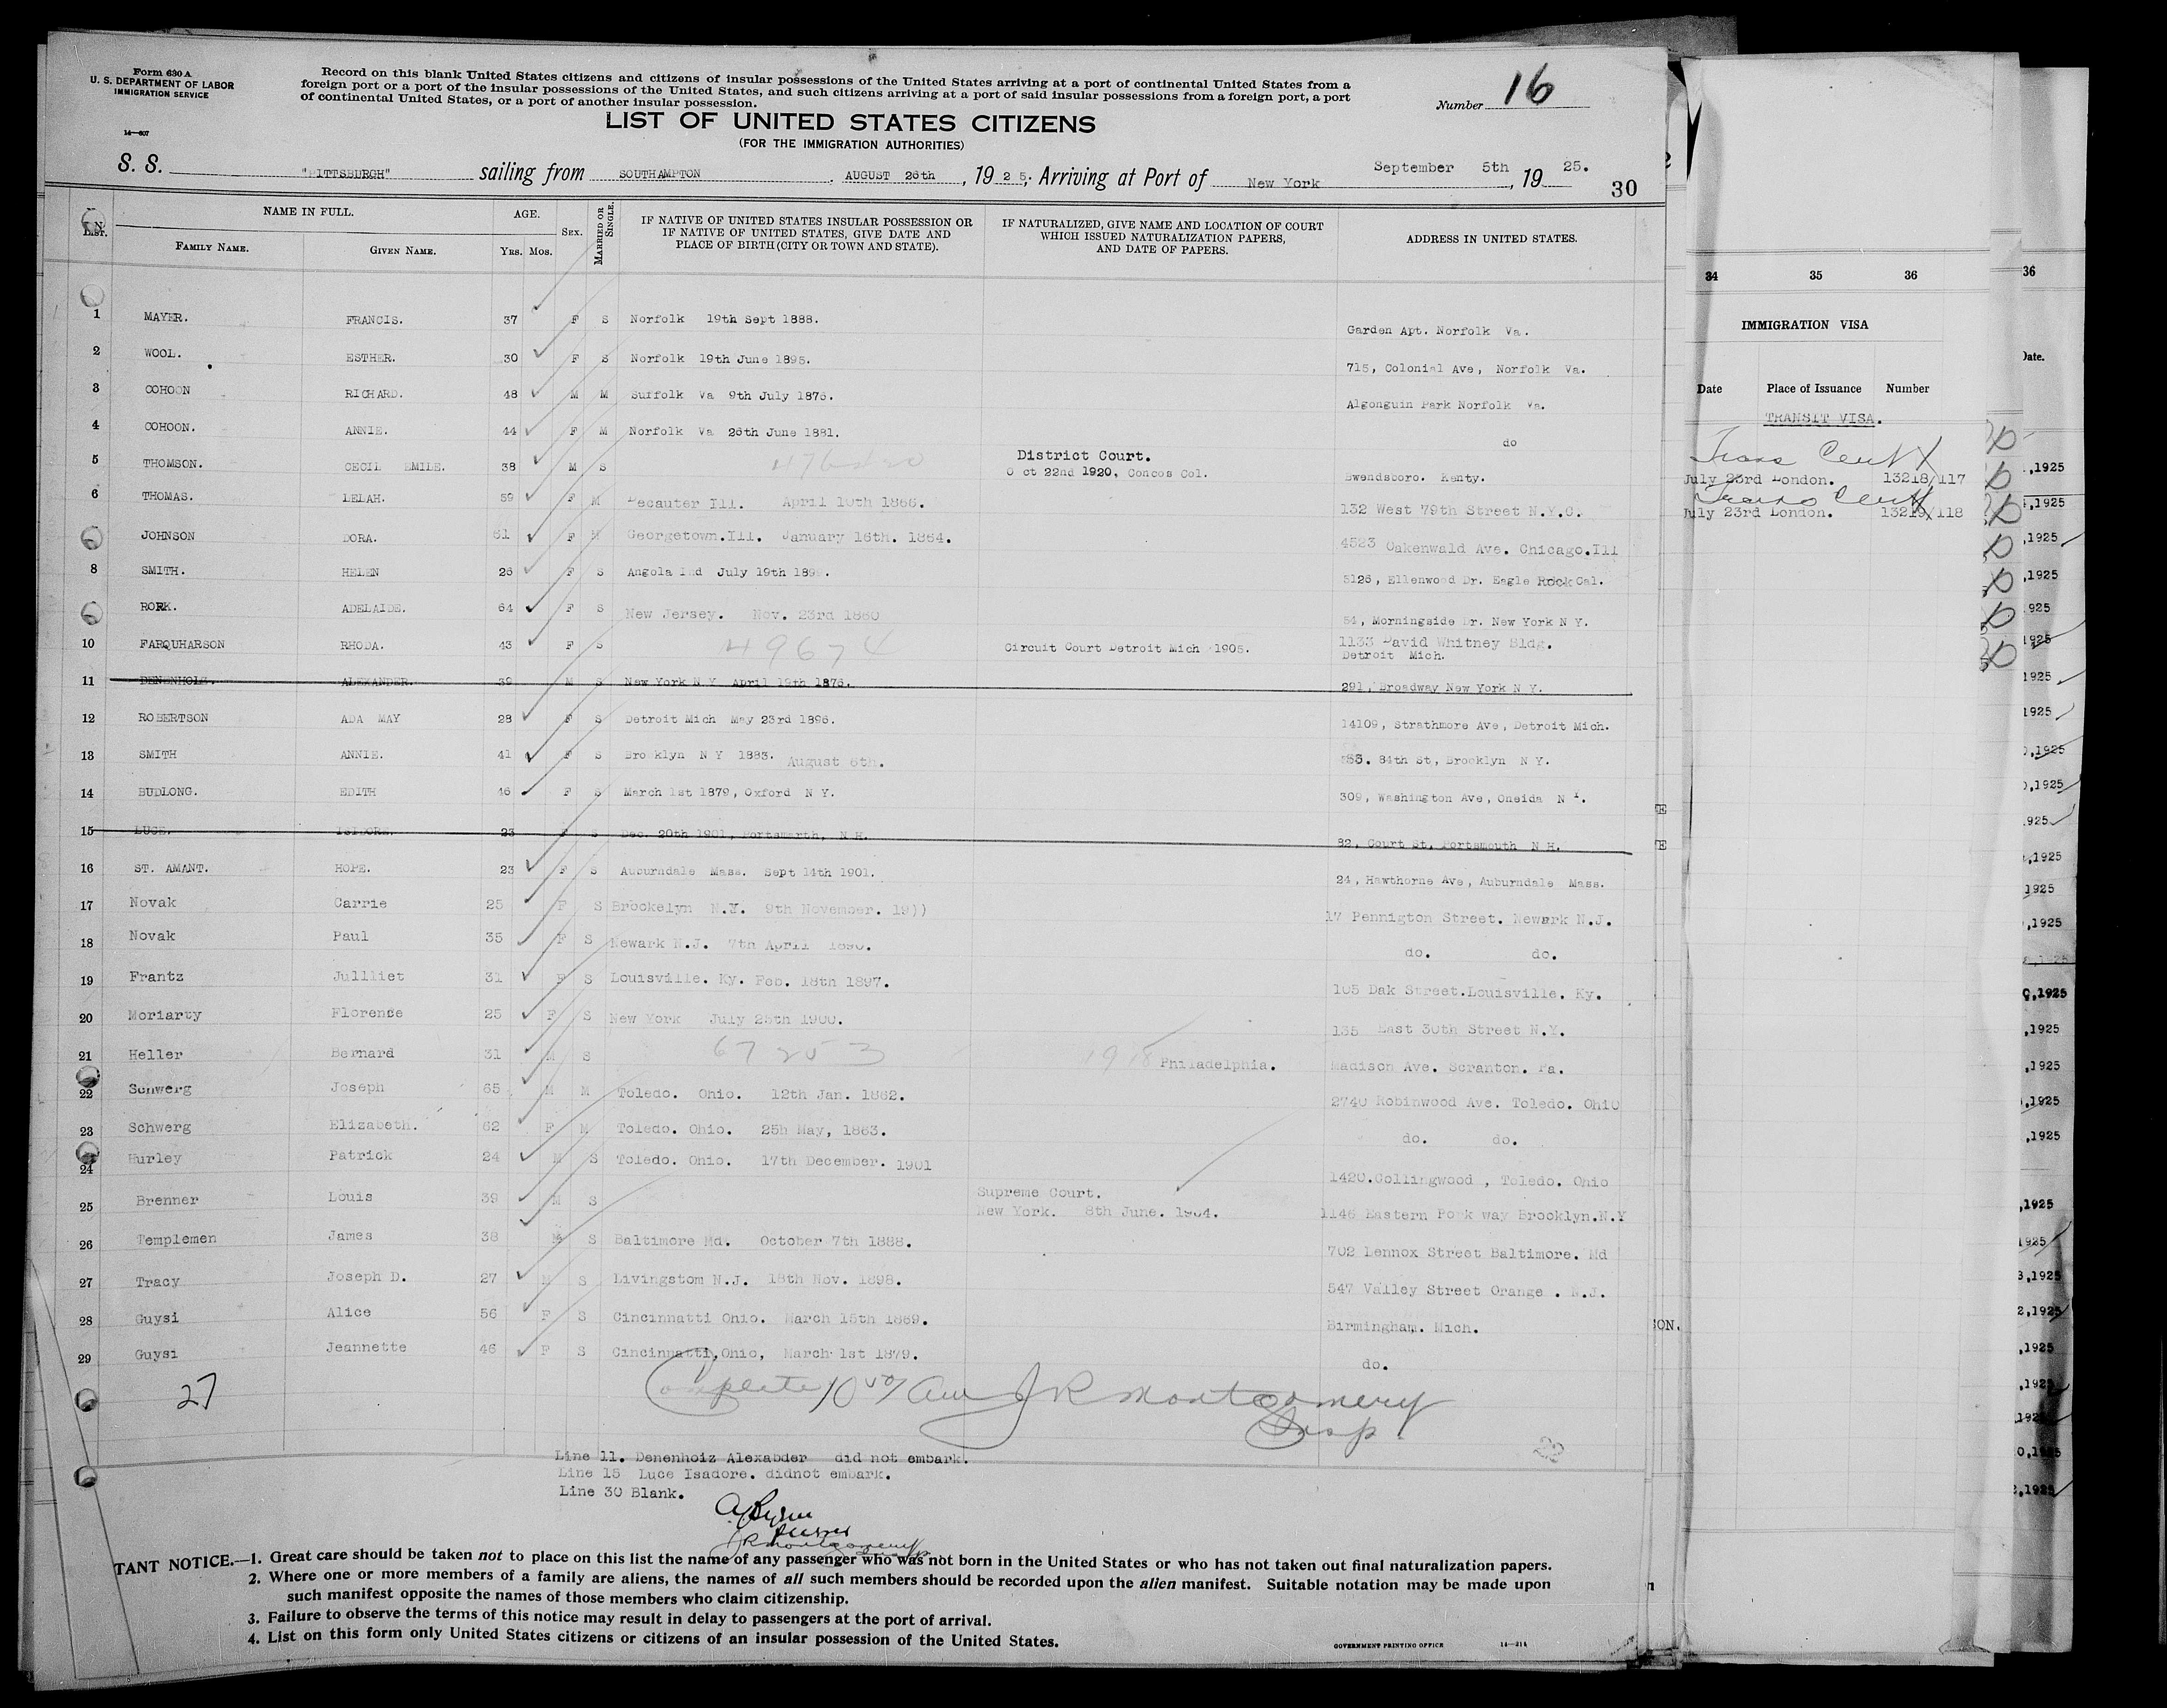 Form 630 A
U. S. DEPARTMENT OF LABOR
IMMIGRATION SERVICE
14—607
Record on this blank United States citizens and citizens of insular possessions of the United States arriving at a port of continental United States from a
foreign port or a port of the insular possessions of the United States, and such citizens arriving at a port of said insular possessions from a foreign port, a port
of continental United States, or a port of another insular possession.
Number 16
LIST OF UNITED STATES CITIZENS
(FOR THE IMMIGRATION AUTHORITIES)
S. S. "PITTSBURGH" sailing from SOUTHAMPTON, AUGUST 26th, 19 2 5; Arriving at Port of New York September 5th, 19 25.
30
LIST. NAME IN FULL. AGE. SEX. MARRIED OR SINGLE. IF NATIVE OF UNITED STATES INSULAR POSSESSION OR IF NATIVE OF UNITED STATES, GIVE DATE AND PLACE OF BIRTH (CITY OR TOWN AND STATE). IF NATURALIZED, GIVE NAME AND LOCATION OF COURT WHICH ISSUED NATURALIZATION PAPERS, AND DATE OF PAPERS. ADDRESS IN UNITED STATES.
FAMILY NAME. GIVEN NAME. YRS. MOS.
1 MAYER. FRANCIS. 37 F S Norfolk 19th Sept 1888. Garden Apt. Norfolk Va.
2 WOOL. ESTHER. 30 F S Norfolk 19th June 1895. 715, Colonial Ave, Norfolk Va.
3 COHOON RICHARD. 48 M M Suffolk Va 9th July 1876. Algonguin Park Norfolk Va.
4 COHOON. ANNIE. 44 F M Norfolk Va 26th June 1881. do
5 THOMSON. CECIL EMILE. 38 M S District Court. O ct 22nd 1920, Concos Col. Ewendsboro. Kenty.
6 THOMAS. LELAH. 59 F M Decauter Ill. April 10th 1866. 132 West 79th Street N.Y.C.
JOHNSON DORA. 61 F M Georgetown.Ill. January 16th. 1864. 4523 Oakenwald Ave. Chicago.Ill
8 SMITH. HELEN 26 F S Angola Ind July 19th 189 . 5126, Ellenwood Dr. Eagle Rock Cal.
RORK. ADELAIDE. 64 F S New Jersey. Nov. 23rd 1860 54, Morningside Dr. New York N Y.
10 FARQUHARSON RHODA. 43 F S 49674 Circuit Court Detroit Mich 1905. 1133 David Whitney Bldg. Detroit Mich.
11 DENENHOLZ. ALEXANDER. 39 M S New York N Y April 19th 1876. 291, Broadway New York N Y.
12 ROBERTSON ADA MAY 28 F S Detroit Mich May 23rd 1896. 14109, Strathmore Ave, Detroit Mich.
13 SMITH ANNIE. 41 F S Brooklyn N Y 1883. August 6th. 84th St, Brooklyn N Y.
14 BUDLONG. EDITH 46 F S March 1st 1879, Oxford N Y. 309, Washington Ave, Oneida N Y.
15 LUCE. ISIDORE. 23 F S Dec. 20th 1901, Portsmarth, N H. 82, Court St, Portsmouth N H.
16 ST. AMANT. HOPE. 23 F S Auburndale Mass. Sept 14th 1901. 24, Hawthorne Ave, Auburndale Mass.
17 Novak Carrie 25 F S Brockelyn N.Y. 9th November. 19)) 17 Pennigton Street. Newark N.J.
18 Novak Paul 35 F S Newark N.J. 7th April 1890. do. do.
19 Frantz Jullliet 31 F S Louisville. Ky. Feb. 18th 1897. 105 Dak Street.Louisville. Ky.
20 Moriarty Florence 25 F S New York July 25th 1900. 135 East 30th Street N.Y.
21 Heller Bernard 31 M S 67253 1918 Philadelphia. Madison Ave. Scranton. Pa.
22 Schwerg Joseph 65 M M Toledo. Ohio. 12th Jan. 1862. 2740 Robinwood Ave. Toledo. Ohio
23 Schwerg Elizabeth. 62 F M Toledo. Ohio. 25h May, 1863. do. do.
24 Hurley Patrick 24 M S Toledo. Ohio. 17th December. 1901 1420.Collingwood , Toledo. Ohio
25 Brenner Louis 39 M S Supreme Court. New York. 8th June. 1904. 1146 Eastern Park way Brooklyn.N.Y
26 Templemen James 38 M S Baltimore Md. October 7th 1888. 702 Lennox Street Baltimore. Md
27 Tracy Joseph D. 27 M S Livingstom N.J. 18th Nov. 1898. 547 Valley Street Orange . N.J.
28 Guysi Alice 56 F S Cincinnatti Ohio. March 15th 1869. Birmingham. Mich.
29 Guysi Jeannette 46 F S Cincinnatti,Ohio, March 1st 1879. do.
27 Complete 10 50/ am J R Montgomery
Insp.
Line 11. Denenhoiz Alexabder did not embark.
Line 15 Luce Isadore. didnot embark.
Line 30 Blank.
J R Montgomery
TANT NOTICE.—1. Great care should be taken not to place on this list the name of any passenger who was not born in the United States or who has not taken out final naturalization papers.
2. Where one or more members of a family are aliens, the names of all such members should be recorded upon the alien manifest. Suitable notation may be made upon
such manifest opposite the names of those members who claim citizenship.
3. Failure to observe the terms of this notice may result in delay to passengers at the port of arrival.
4. List on this form only United States citizens or citizens of an insular possession of the United States.
GOVERNMENT PRINTING OFFICE 14—214
34 35 36
IMMIGRATION VISA
Date Place of Issuance Number
TRANSIT VISA.
Trans Cert
July 23rd London. 13218/117
Trans Cert
July 23rd London. 13219/118
36
Date.